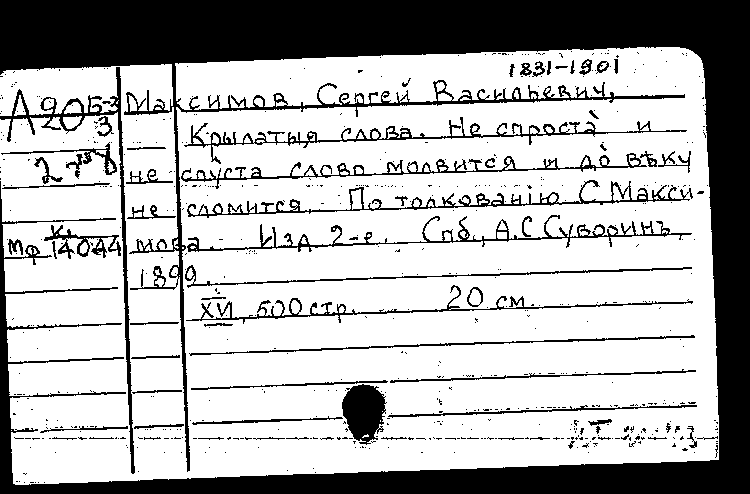 1831-1901
А 20 Б-3/3 Максимов, Сергей Васильевич,
Крылатыя слова. Не спроста̀ и
не спу̀ста слово молвится и до̀ вѣку
не сломится. По толкованію С. Макси-
Мф к. 14044 мова. Изд. 2-е. Спб., А.С Суворинъ,
1899.
XVI, 500 стр. 20 см.